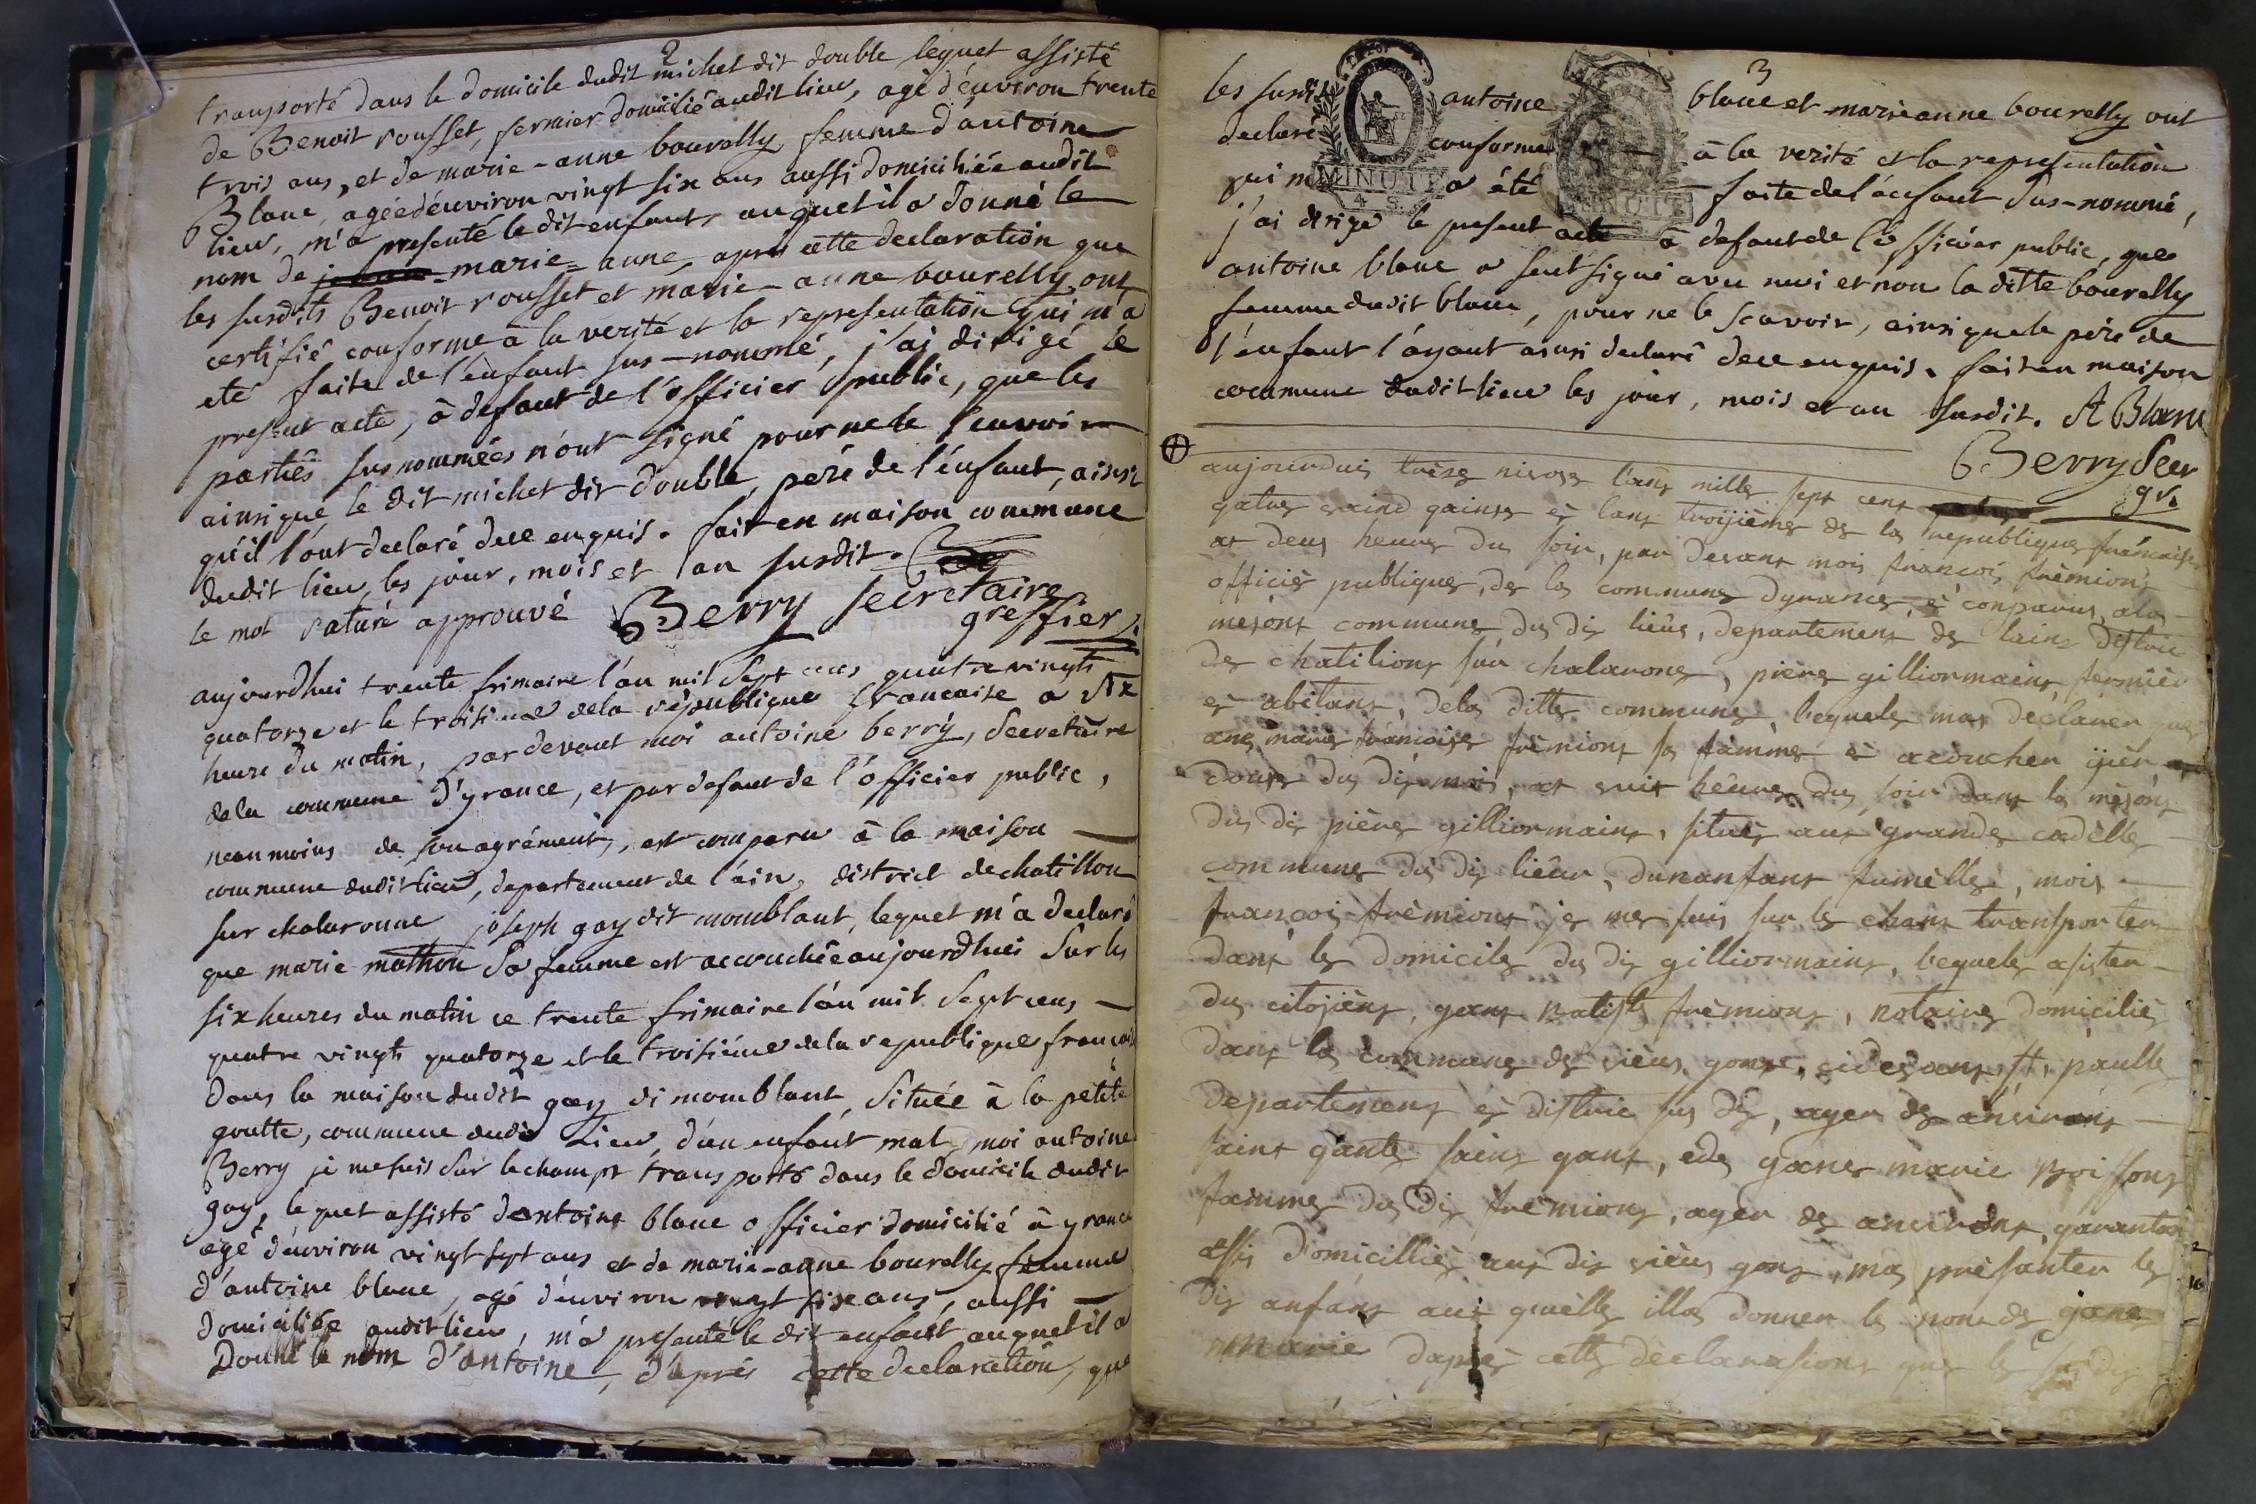 2
transporté dans le domicile dudit michel dit double lequel assisté
de Benoit rousset, fermier domicilié audit lieu, agé d'environ trente
trois ans, et de marie-anne bourelly femme d'antoine
Blanc, agée d'environ vingt six ans aussi domiciliée audit
lieu, m'a presenté le dit enfant, auquel il a donné le
nom de marie-anne, après cette declaration que
les susdits Benoit rousset et marie-anne bourelly ont
certifié conforme à la verité et la representation qui m'a
eté faite de l'enfant sus-nommé, j'ai dirigé le
present acte, à defaut de l'officier public, que les
partiës sus nommées n'ont signé pour ne le scavoir
ainsi que le dit michel dit double, pére de l'enfant, ainsi
qu'il l'ont declaré de ce enquis. fait en maison commune
dudit lieu les jour, mois et an susdit.
le mot raturé approuvé Berry secretaire
greffier
aujourdhui trente frimaire l'an mil sept cens quatre vingts
quatorze et le troisieme de la republique francaise a six
heure du matin, pardevant moi antoine berry, secretaire
de la commune d'yrance, et par defaut de l'officier public,
neanmoins de son agrément, est comparu à la maison
commune dudit lieu, departement de l'ain, district de chatillon
sur chalaronne joseph gay dit momblant, lequel m'a declaré
que marie mathon sa femme est accouchée aujourdhui sur les
six heures du matin ce trente frimaire l'an mil sept cens
quatre vingts quatorze et le troisiéme de la republique francaise
dans la maison dudit gay di momblant, située à la petite
goutte, commune dudit Lieu, d'un enfant mal, moi antoine
Berry je me suis sur le champt transporté dans le domicile dudit
gay, lequel assisté d'antoine blanc officier domicilié à yrance
agé d'environ vingt sept ans et de marie-anne bourelly femme
d'antoine blanc, agé d'environ vingt six ans, aussi
domiciliée audit lieu, m'a presenté le dit enfant auquel il a
Donné le nom d'antoine, d'après cette declaration, que
3
les susdit antoine blanc et marie anne bourelly ont
declaré conforme à la verité et la representation
qui m'a été faite de l'enfant sus-nommé,
j'ai dirigé le present acte à defaut de l'officier public, que
antoine blanc a seul signé avec moi et non la ditte bourelly
femme dudit blanc, pour ne le scavoir, ainsi que le pére de
l'enfant l'ayant ainsi declaré de ce enquis. fait en maison
commune dudit lieu les jour, mois et an susdit. A Blanc
MINUTE
4 S.
MINUTE
Berry Secr
gr.
aujourduis treize nivose l'ant mille sept cent
gatre vaind gainse et lant troijième de la republique francaise
at deus heure du soir, par devant mois francois frèmiont
officiè publique, de la commune dyrance, è conparus, a la
mèsont commune du dis lieus, departement de lains distric
de chatiliont sur chalarone, pière gilliormaint fermièr
et abitant, de la ditte commune, lequele mas déclarer que
ane marie francoise frèmiont sa famme è acoucher ijièr
douse du dis mois, at suit heure du soir dans la mèsont
du dis pière gilliormaint, situèe aus grande cadèlle
commune du dis lieur, dunanfant fumèlle, mois
francois frèmiont je me suis sur le chant transporter
dant le domicile du dis gilliormaint, lequele asister
du citojièns, gant Batiste frèmiont, notaire domiciliè
dant la commune de vieus gons, cidevant st. paulle
departement et distric sus dis, ager de anviront
saint gante saint gant, ede gane marie Boissont
famme du dis frèmiont, ager de anviront garante
assis domicilliè aus dis vieus gons, mas prèsanter le
dis anfant aus quèlle illa donner le nom de gane
marie dapès cette dèclarasiont que le sus dis